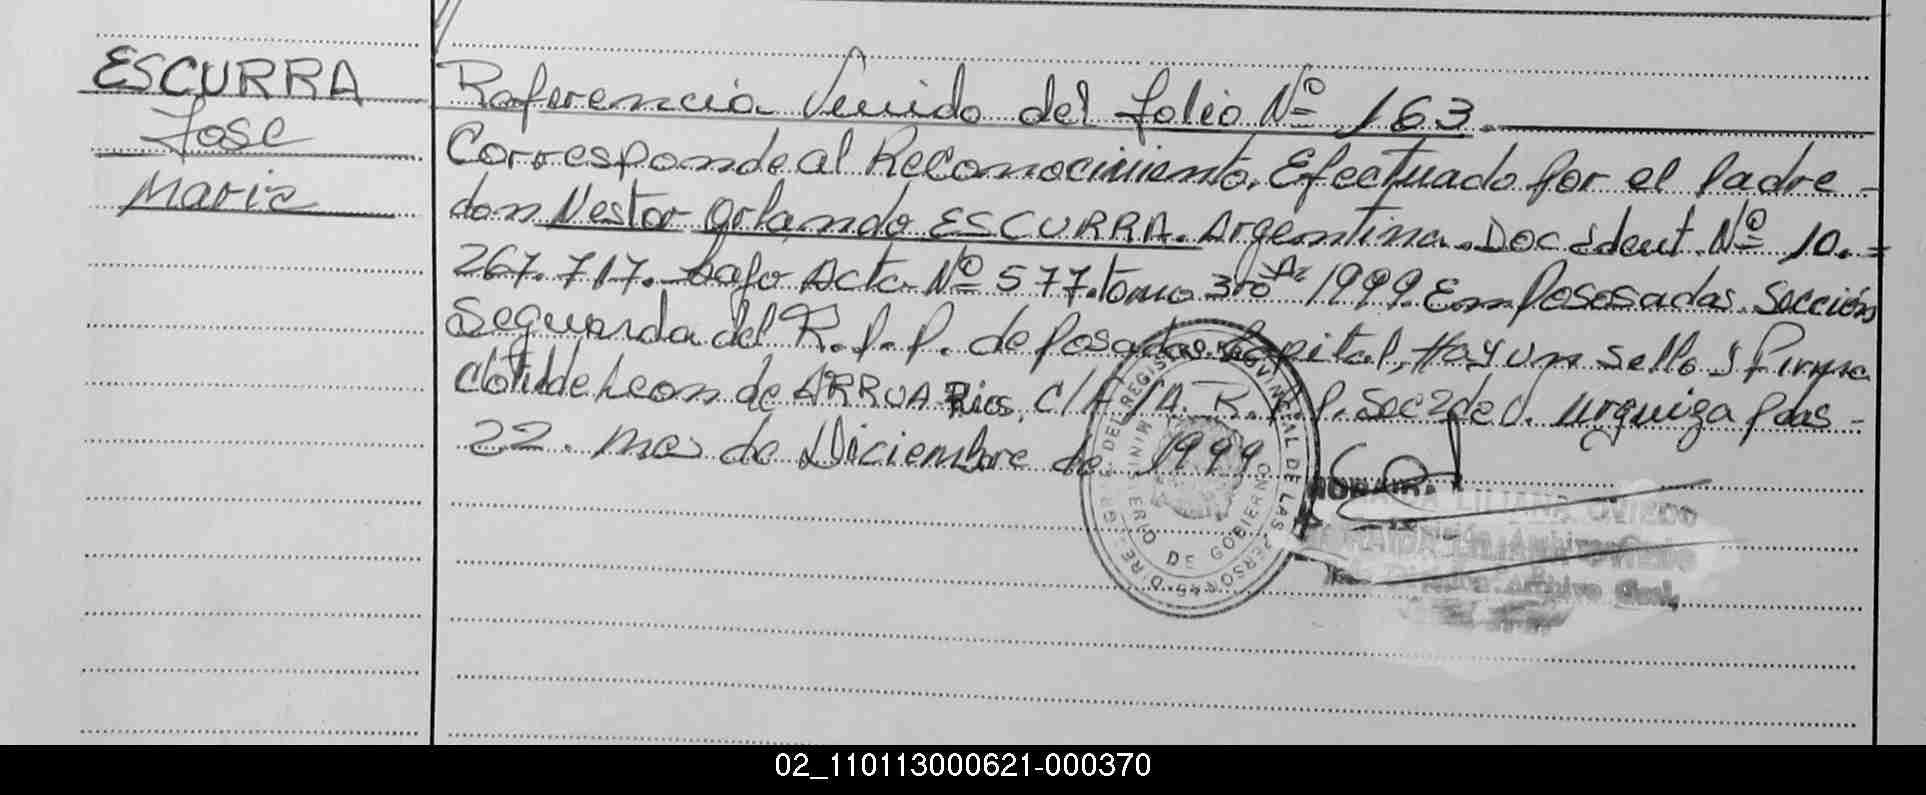 ESCURRA
Jose
Maria
Referencia Venido del folio Nº 163.
Corresponde al Reconocimiento. Efectuado por el Padre -
don Nestor Orlando ESCURRA. Argentina. Doc Ident. Nº 10.=
267.717. bajo Acta Nº 577. tomo 3ro 1999. En Posesadas. Sección
Segunda del R.P.P. de Posadas Capital, Hay un sello y Firma
Clotilde Leon de ARRUA Rios, C/A/A. R.P.P. Sec 2da J. Urquiza Pdas -
22. mes de Diciembre de 1999
DIREC. GRAL. DEL REGISTRO PROVINCIAL DE LAS PERSONAS
MINISTERIO DE GOBIERNO
02_110113000621-000370